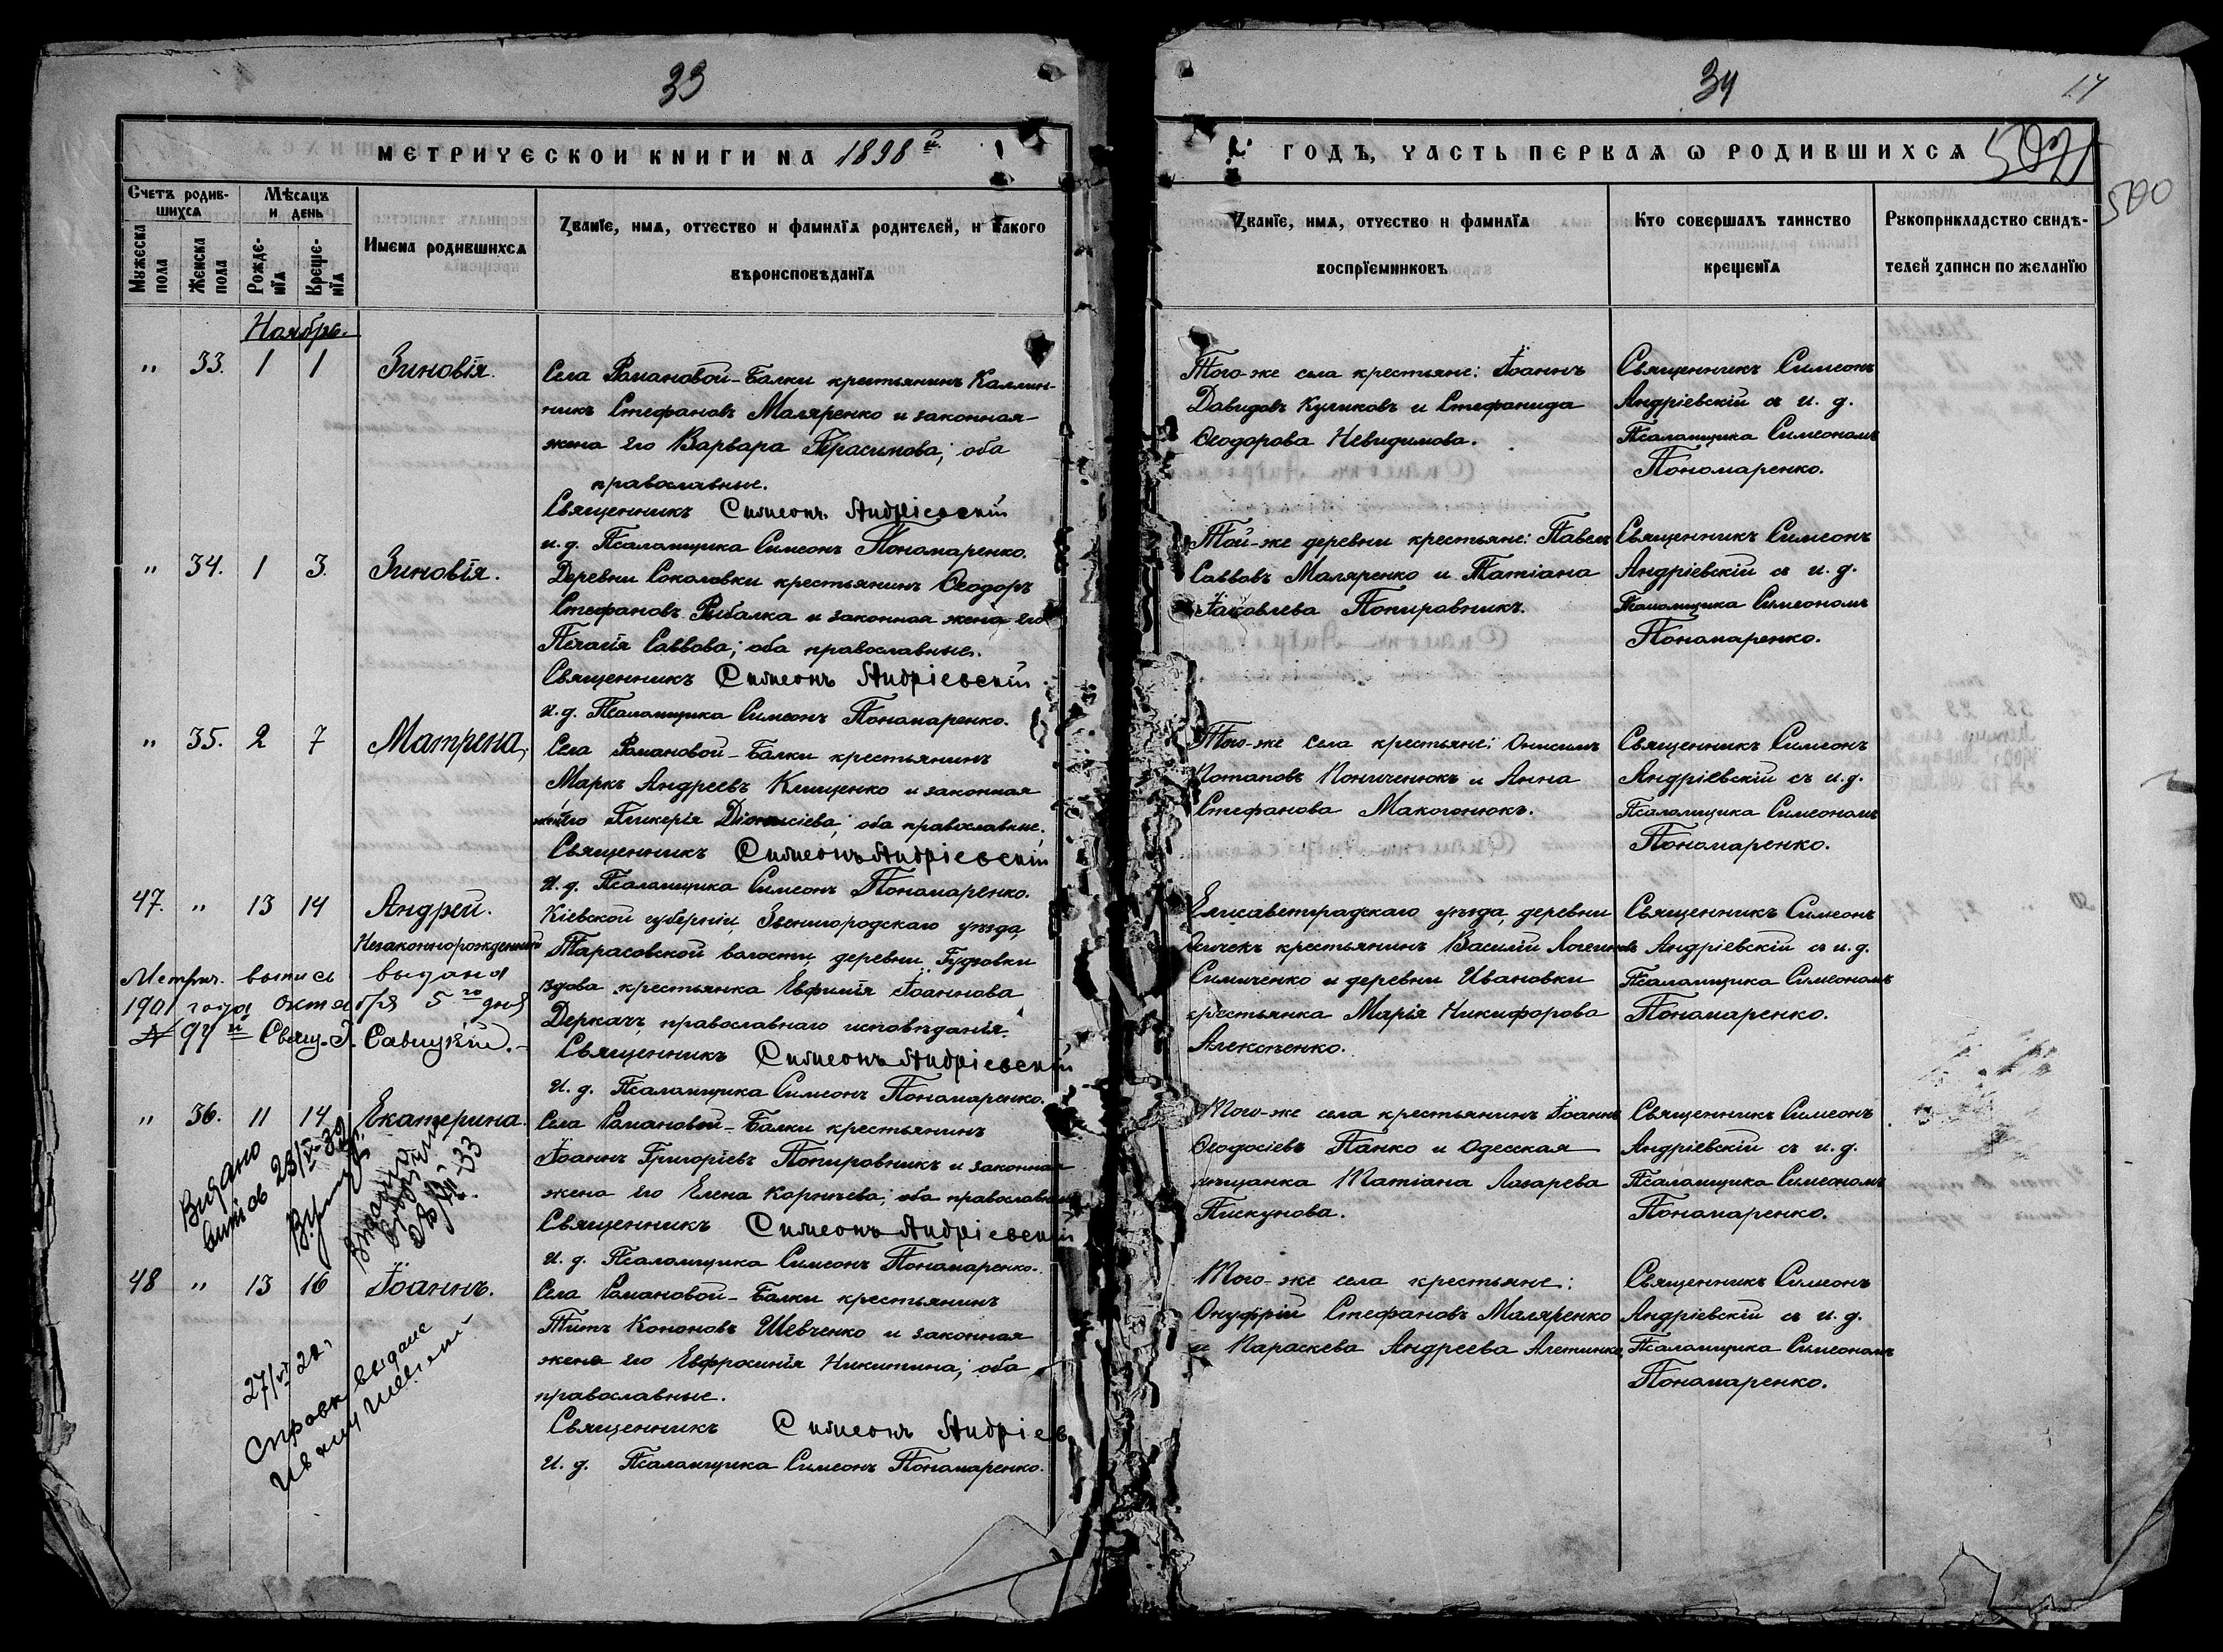 33
МЕТРИЧЕСКОЙ КНИГИ НА 1898й
Счетъ родив-
шихся
Мѣсяцъ
и день
Мужеска
пола
Женска
пола
Рожде-
нїя
Креще-
нїя
Имена родившихся
Званїе, имя, отчество и фамилїя родителей, и какого
вѣроисповѣданїя
Ноябрь.
" 33. 1 1 Зиновія.
Села Романовой-Балки крестьянинъ Каллин-
никъ Стефановъ Маляренко и законная
жена его Варвара Герасимова; оба
православные.
Священникъ Симеонъ Андріевскій
и. д. Псаломщика Симеонъ Пономаренко.
" 34. 1 3. Зиновія.
Деревни Соколовки крестьянинъ Ѳеодоръ
Стефановъ Рыбалка и законная жена его
Пелагія Саввова; оба православные.
Священникъ Симеонъ Андріевскій
и. д. Псаломщика Симеонъ Пономаренко.
" 35. 2 7 Матрена.
Села Романовой-Балки крестьянинъ
Маркъ Андреевъ Клищенко и законная
его Гликерія Діонисіева; оба православные.
Священникъ Симеонъ Андріевскій
И. д. Псаломщика Симеонъ Пономаренко.
47. " 13 14 Андрей.
Незаконнорожденный
Кіевской губерніи Звенигородскаго уѣзда,
Тарасовской волости, деревни Гудзовки
вдова крестьянка Евфимія Іоаннова
Деркачъ православнаго исповѣданія.
Священникъ Симеонъ Андріевскій
И. д. Псаломщика Симеонъ Пономаренко.
Метрич. выпись выдана
1901 года октября 5го дня
№ 99й Свящ. І. Савицкій.
" 36. 11 14 Екатерина.
Села Романовой-Балки крестьянинъ
Іоаннъ Григоріевъ Попировникъ и законная
жена его Елена Корниева; оба православные
Священникъ Симеонъ Андріевскій
И. д. Псаломщика Симеонъ Пономаренко.
Видано
витяв 23/V-32
48 " 13 16 Іоаннъ.
Села Романовой-Балки крестьянинъ
Титъ Кононовъ Шевченко и законная
жена его Евфросинія Никитина; оба
православные.
Священникъ Симеонъ Андріев
И. д. Псаломщика Симеонъ Пономаренко.
27/VI 22г
Справк выдане
34
17
ГОДЪ, ЧАСТЬ ПЕРВАЯ Ѡ РОДИВШИХСЯ
500
Званїе, имя, отчество и фамилїя
воспрїемниковъ
Кто совершалъ таинство
крещенїя
Рукоприкладство свидѣ-
телей записи по желанїю
Того-же села крестьяне: Іоаннъ
Давидовъ Куликовъ и Стефанида
Ѳеодорова Невидимова.
Священникъ Симеонъ
Андріевскій съ и. д.
Псаломщика Симеономъ
Пономаренко.
Той-же деревни крестьяне: Павелъ
Саввовъ Маляренко и Татіана
Іаковлева Попировникъ.
Священникъ Симеонъ
Андріевскій съ и. д.
Псаломщика Симеономъ
Пономаренко.
Того-же села крестьяне: Онисимъ
Потаповъ Пониченюкъ и Анна
Стефанова Макогонюкъ.
Священникъ Симеонъ
Андріевскій съ и. д.
Псаломщика Симеономъ
Пономаренко.
Елисаветградскаго уѣзда, деревни
крестьянинъ Василій Логгиновъ
Симиченко и деревни Ивановки
крестьянка Марія Никифорова
Алексѣенко.
Священникъ Симеонъ
Андріевскій съ и. д.
Псаломщика Симеономъ
Пономаренко.
Того-же села крестьянинъ Іоаннъ
Ѳеодосіевъ Панко и Одесская
мѣщанка Татіана Лазарева
Пискунова.
Священникъ Симеонъ
Андріевскій съ и. д.
Псаломщика Симеономъ
Пономаренко.
Того-же села крестьяне:
Онуфрій Стефановъ Маляренко
и Параскева Андреева
Священникъ Симеонъ
Андріевскій съ и. д.
Псаломщика Симеономъ
Пономаренко.